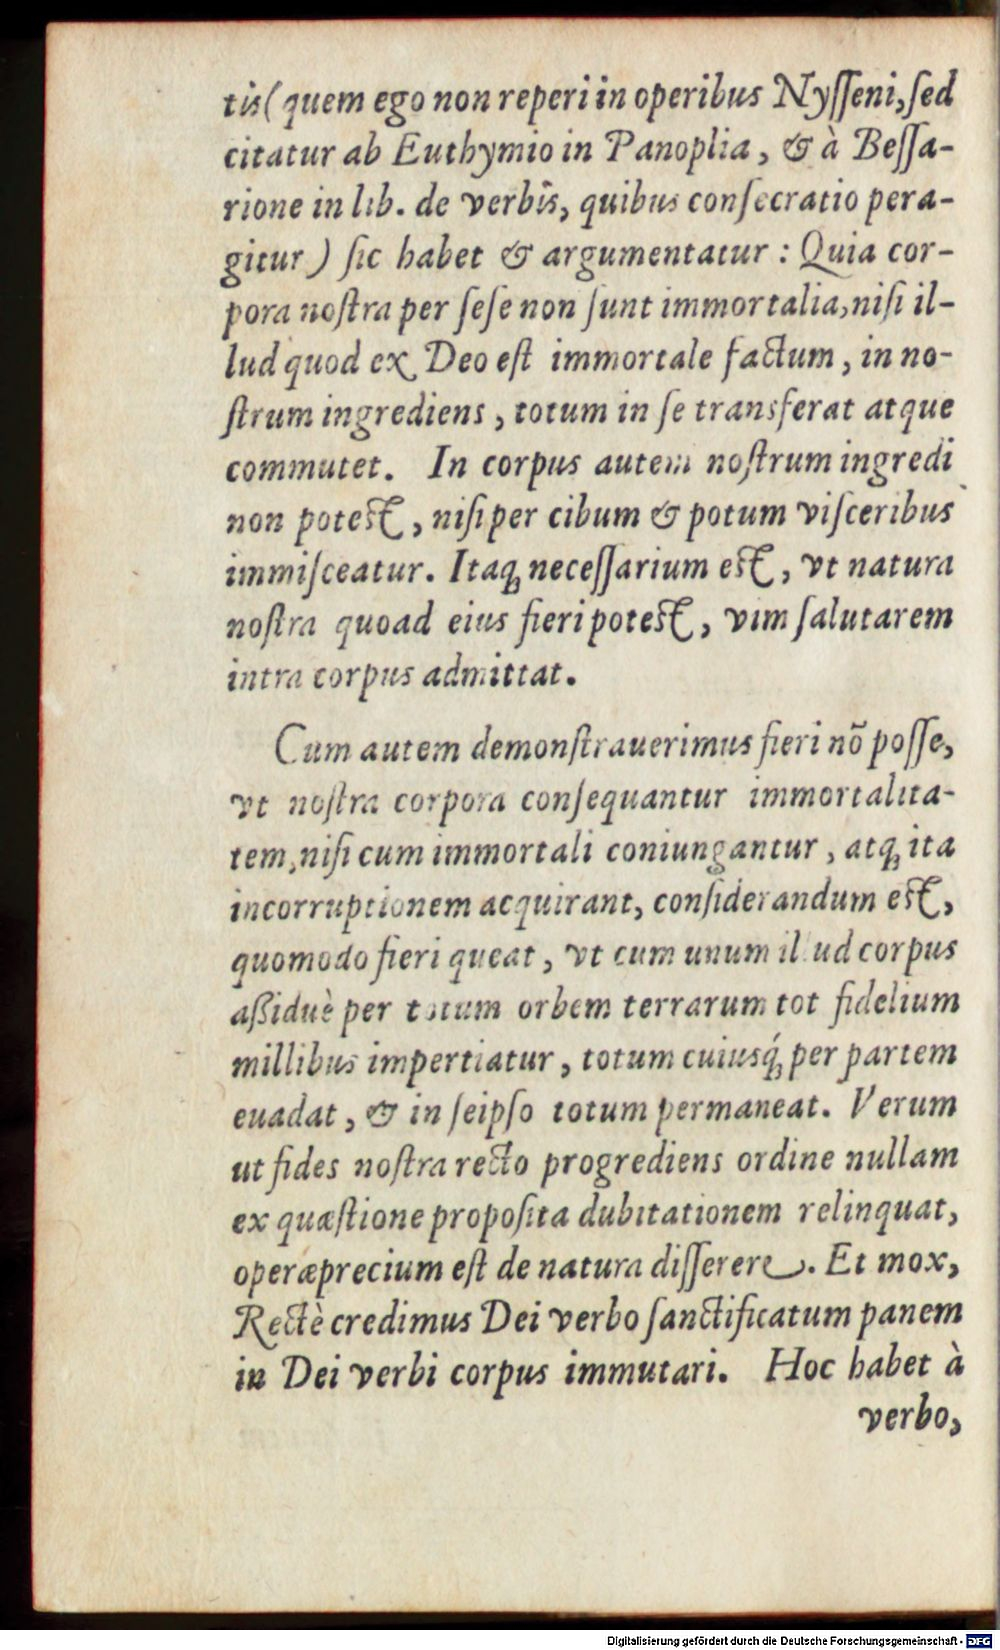 tis (quem ego non reperi in operibus Nyſſeni, ſed
citatur ab Euthymio in Panoplia, & à Beſſa-
rione in lib. de verbis, quibus conſecratio pera-
gitur) ſic habet & argumentatur : Quia cor-
pora noſtra per ſeſe non ſunt immortalia, niſi il-
lud quod ex Deo eſt immortale factum, in no-
ſtrum ingrediens, totum in ſe transferat atque
commutet. In corpus autem noſtrum ingredi
non poteſt, niſi per cibum & potum viſceribus
immiſceatur. Itaq; neceſſarium eſt, vt natura
noſtra quoad eius fieri poteſt, vim ſalutarem
intra corpus admittat.
Cum autem demonſtrauerimus fieri nõ poſſe,
vt noſtra corpora conſequantur immortalita-
tem, niſi cum immortali coniungantur, atq; ita
incorruptionem acquirant, conſiderandum eſt,
quomodo fieri queat, vt cum unum illud corpus
aßiduè per totum orbem terrarum tot fidelium
millibus impertiatur, totum cuiusq́; per partem
euadat, & in ſeipſo totum permaneat. Verum
ut fides noſtra recto progrediens ordine nullam
ex quæſtione propoſita dubitationem relinquat,
operæprecium eſt de natura diſſerere. Et mox,
Rectè credimus Dei verbo ſanctificatum panem
in Dei verbi corpus immutari. Hoc habet à
verbo,
Digitalisierung gefördert durch die Deutsche Forschungsgemeinschaft - DFG